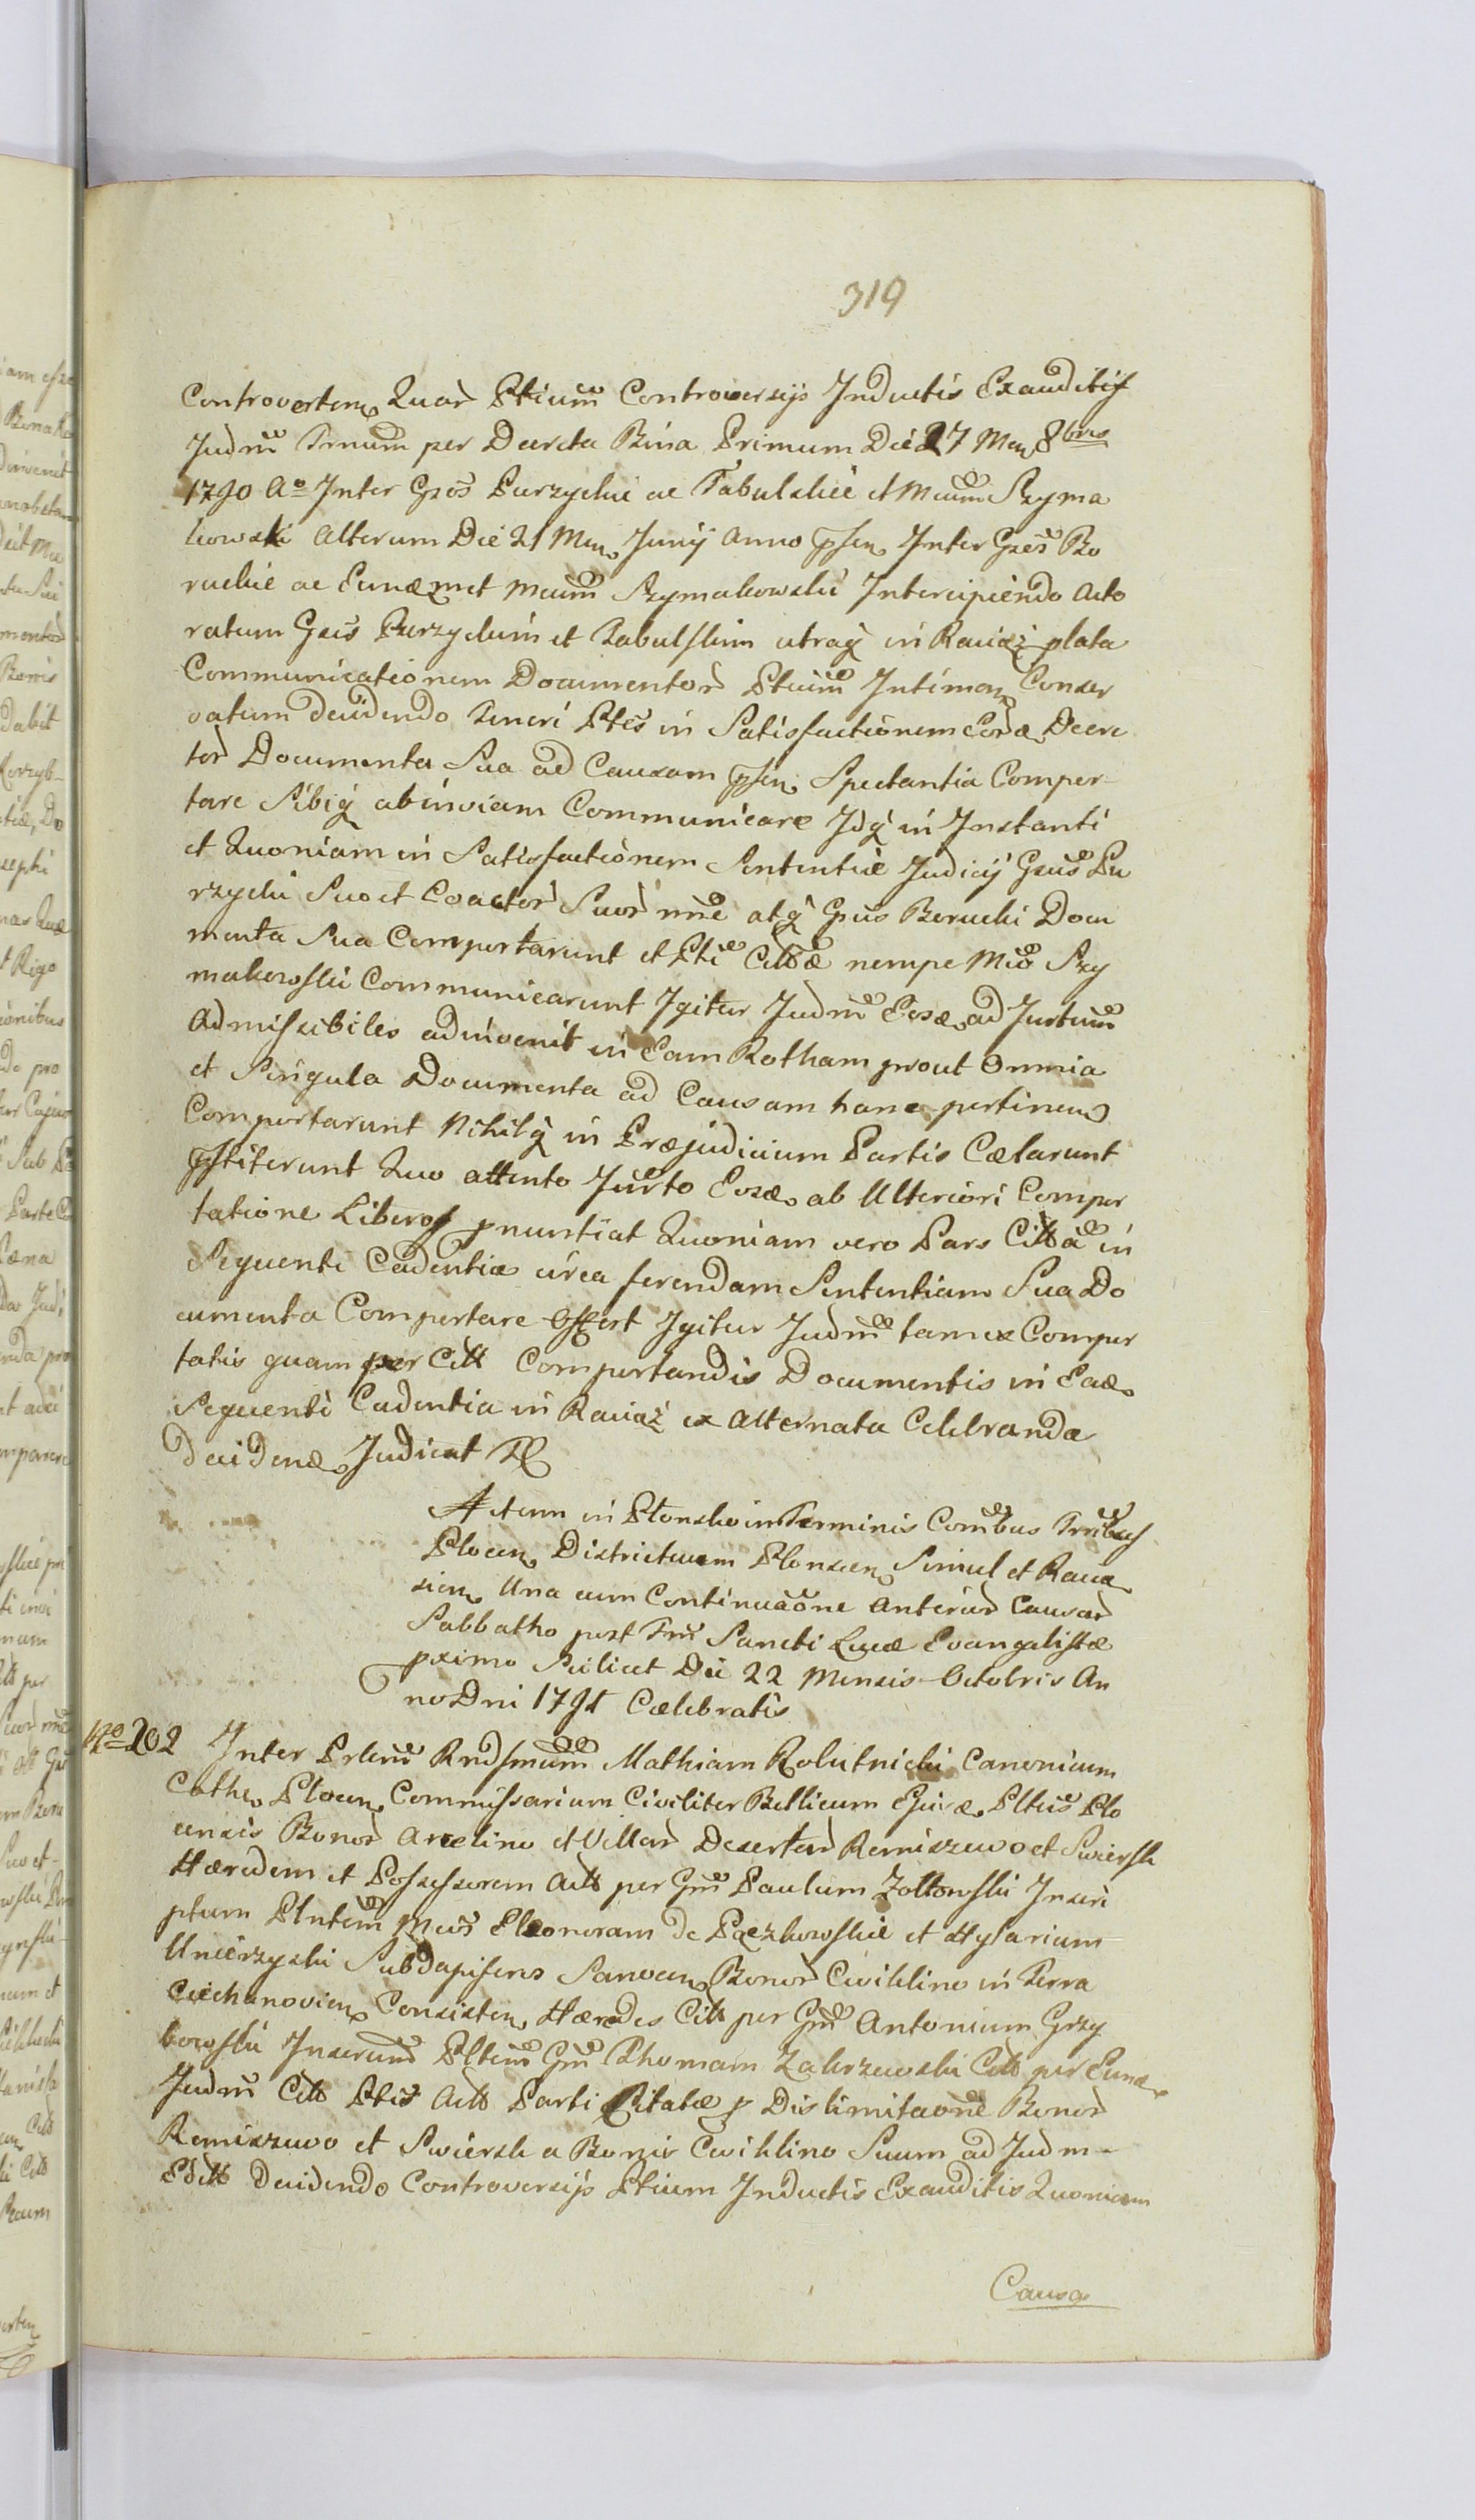 319
Controverten Quar Ptium Controversijs Inductis Exauditis
Judm Trnum per Decreta Bina Primum Die 27 Men 8bris
1790 Ao Inter Gsos Purzyckie ac Tabulskie et Mcum Szyma
kowski Alterum Die 21 Men Junij Anno psen Inter Gsos Bo
ruckie ac Eundemet Mcum Szymakowski Intercipiendo Acto
ratum Gsis Purzyckim et Tabulskim utraq in Raciąż plata
Communicationem Documentor Ptium Intiman Conser
vatum decidendo Teneri Ptes in Satisfactionem Eorde Decre
tor Documenta Sua ad Causam psen Spectantia Compor
tare Sibiq abinviam Communicare Idq in Instanti
et Quoniam in Satisfactionem Sententiæ Judicij Gsus Pu
rzycki Suo et Coactor Suor nne atq Gsus Borucki Docu
menta Sua Comportarunt et Pti Cittæ nempe Mco Szy
makowski Communicarunt Igitur Judm Eosde ad Jurtum
Admissibiles adinvenit in Eam Rotham prout Omnia
et Singula Documenta ad Causam hanc pertinen
Comportarunt Nihilq in Præjudicium Partis Cælarunt
pstiterunt Quo attento Jurto Eosde ab Ulteriori Compor
tatione Liberos pnuntiat Quoniam vero Pars Citta in
Sequenti Cadentia circa ferendam Sententiam Sua Do
cumenta Comportare Offert Igitur Judm tam ex Compor
tatis quam per Citt Comportandis Documentis in Eade
Sequenti Cadentia in Raciąż ex Alternata Celebranda
Decidende Judicat
Actum in Płonsko in Terminis Conbus Trribus
Plocen Districtuum Plonscen Simul et Racia
sien Una cum Continuaone Anterior Causar
Sabbatho post Fm Sancti Lucæ Evangelistæ
pximo Scilicet Die 22 Mensis Octobris An
no Dni 1791 Cælebratis
No 202 Inter Prlem Rndssmum Mathiam Rolutnicki Canonicum
Cathe Plocen Commissarium Civiliter Bellicum Ejusde Pltus Plo
censis Bonor Arcelino et Villar Desertar Remiszewo et Swiersk
Hæredem et Possessorem Actt per Gm Paulum Zołtowski Inscri
ptum Plntem Mcos Eleonoram de Pączkowskie et Hylarium
Unierzyski Subdapiferos Sanocen Bonor Cwiklino in Terra
Ciechanovien Consisten Hæredes Citt per Gm Antonium Grzy
bowski Inserend Pltem Gm Thomam Zakrzewski Citt per Eunde
Judm Citt Ptis Actt Parti Citatæ p Dislimitaone Bonor
Remiszewo et Swiersk a Bonis Cwiklino Suum ad Judm
Editt Decidendo Controversijs Ptium Inductis Exauditis Quoniam
Causa